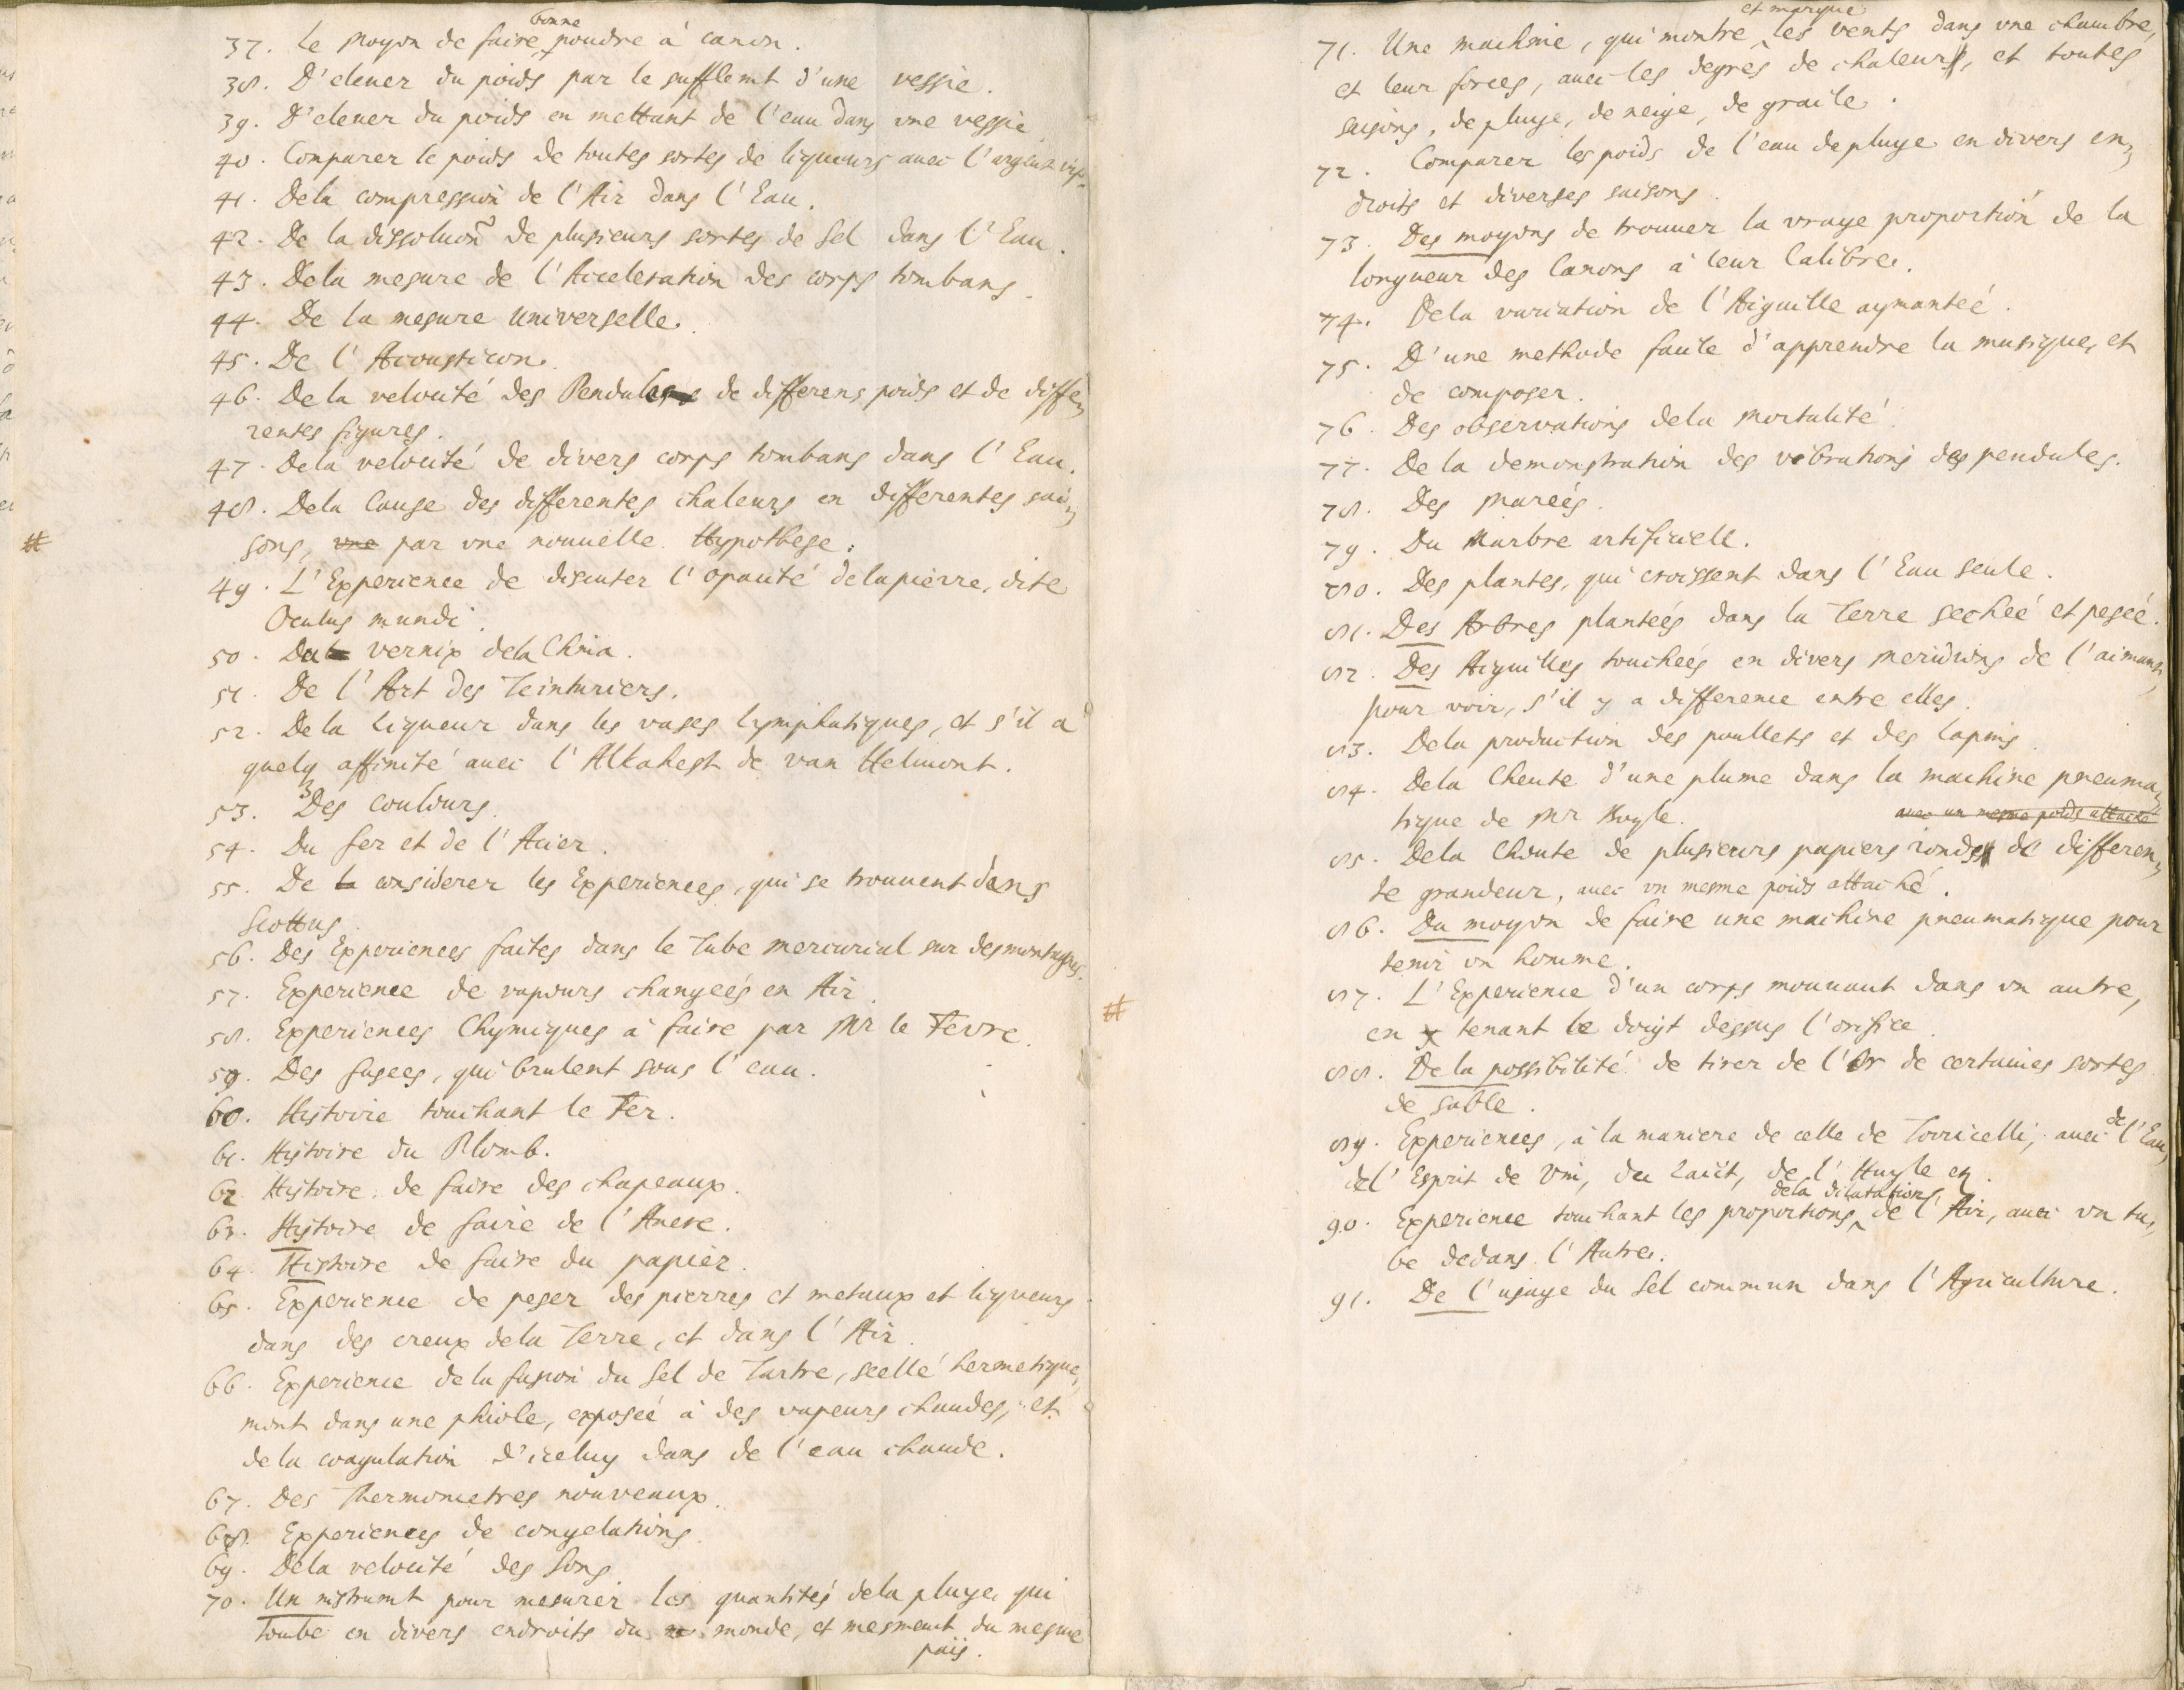 37. Le Moyen de faire bonne poudre à canon.
38. D'elever du poids par le sufflemt d'une vessie.
39. D'elever du poids en mettant de l'eau dans une vessie
40. Comparer le poids de toutes sortes de liqueurs avec l'argent vif.
41. Dela compression de l'Air dans l'Eau.
42. De la dissoluõn de plusieurs sortes de Sel dans l'Eau.
43. Dela mesure de l'Acceleration des corps tombans.
44. De la mesure Universelle.
45. De l'Acousticon.
46. Dela velocité des Pendules de differens poids et de diffe,
rentes figures.
47. Dela velocité de divers corps tombans dans l'Eau.
48. Dela Cause des differentes chaleurs en differentes sai,
sons, une par une nouvelle Hypothese.
49. L'Experience de discuter l'opacité dela pierre, dite
Oculus mundi.
50. Du vernix dela China.
51. De l'Art des Teinturiers.
52. Dela liqueur dans les vases lymphatiques, et s'il a
quelq affinité avec l'Alkahest de van Helmont.
53. Des Coulours.
54. Du fer et de l'Acier.
55. De la considerer les Experiences, qui se trouvent dans
Scottus.
56. Des Experiences faites dans le Tube mercurial sur des montagnes.
57. Experience de vapours changeés en Air.
58. Experiences Chymiques à faire par Mr le Fevre.
59. Des fusees, qui brulent sous l'eau.
60. Histoire touchant le Fer.
61. Histoire du Plomb.
62. Histoire de faire des chapeaux.
63. Histoire de faire de l'Ancre.
64. Histoire de faire du papier.
65. Experience de peser des pierres et metaux et liqueurs
dans des creux dela Terre, et dans l'Air.
66. Experience dela fusion du Sel de Tartre, scellé hermetique,
ment dans une phiole, exposeé à des vapeurs chaudes, et
dela coagulation d'iceluy dans de l'eau chaude.
67. Des Thermometres nouveaux.
68. Experiences de congelations.
69. Dela velocité des Sons.
70. Un instrumt pour mesurer les quantités dela pluye qui
tombe en divers endroits du monde, et mesment du mesme
païs.
71. Une machine, qui montre et marque les vents dans une chambre,
et leur forces, avec les degrés de chaleur, et toutes
saisons, de pluye, de neige, de graile.
72. Comparer les poids de l'eau de pluye en divers en,
droits et diverses saisons.
73. Des moyens de trouver la vraye proportion de la
longueur des Canons à leur Calibre.
74. Dela variation de l'Aiguille aymanteé.
75. D'une methode facile d'apprendre la musique, et
de composer.
76. Des observations dela Mortalité.
77. De la demonstration des vibrations des pendules.
78. Des Mareés.
79. Du Marbre artificiell.
80. Des plantes, qui croissent dans l'Eau seule.
81. Des Arbres planteés dans la Terre secheé et peseé.
82. Des Aiguilles toucheés en divers Meridions de l'aimant,
pour voir, s'il y a difference entre elles.
83. Dela production des poullets et des lapins.
84. Dela Cheute d'une plume dans la machine pneuma,
tique de Mr Boyle.
avec un mesme poids attaché
85. Dela Cheute de plusieurs papiers ronds de differen,
te grandeur, avec un mesme poids attaché.
86. Du moyen de faire une machine pneumatique pour
tenir un homme.
87. L'Experience d'un corps mouvant dans un autre,
en tenant le doigt dessus l'orifice.
88. De la possibilité de tirer de l'Or de certaines sortes
de sable.
89. Experiences, à la maniere de celle de Torricelli, avec de l'Eau,
del'Esprit de Vin, du Laict, de l'Huyle etc.
90. Experience touchant les proportions dela dilatation, de l'Air, avec un tu,
be dedans l'Autre.
91. De l'usage du Sel commun dans l'Agriculture.